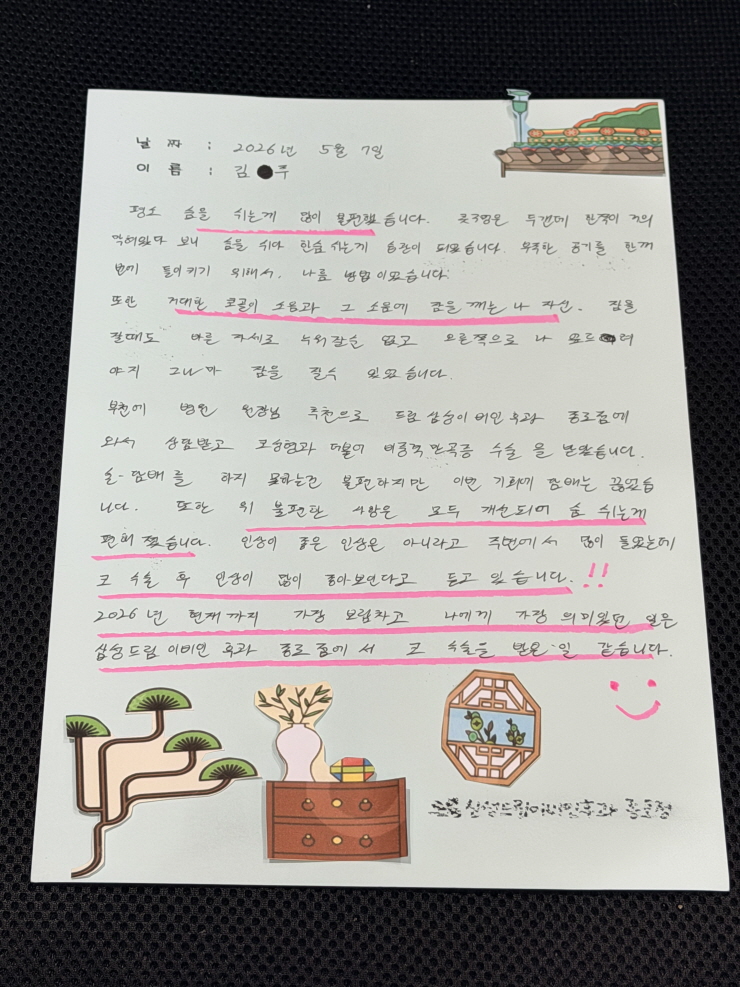 날 짜 : 2026년 5월 7일
이 름 : 김 주
평소 숨을 쉬는게 많이 불편했습니다. 콧구멍은 두갠데 한쪽이 거의
막혀있다 보니 숨을 쉬다 한숨쉬는게 습관이 되었습니다. 부족한 공기를 한꺼
번에 들이키기 위해서. 나름 방법이었습니다
또한 거대한 코골이 소음과 그 소음에 잠을 깨는 나 자신. 잠을
잘때도 바른 자세로 누워잘순 없고 오른쪽으로 나 모로 려
야지 그나마 잠을 잘수 있었습니다.
부천에 병원 원장님 추천으로 드림삼성이비인후과 종로점에
와서 상담받고 코성형과 더불어 비중격만곡증 수술 을 받았습니다.
술-담배를 하지 못하는건 불편하지만 이번 기회에 담배는 끊었습
니다. 또한 위 불편한 사항은 모두 개선되어 숨 쉬는게
편해 졌습니다. 인상이 좋은 인상은 아니라고 주변에서 많이 들었는데
코 수술 후 인상이 많이 좋아보인다고 듣고 있습니다.!!
2026년 현재까지 가장 보람차고 나에게 가장 의미있던 일은
삼성드림이비인후과 종로점에서 코 수술을 받은 일 같습니다.
삼성드림이비인후과 종로점